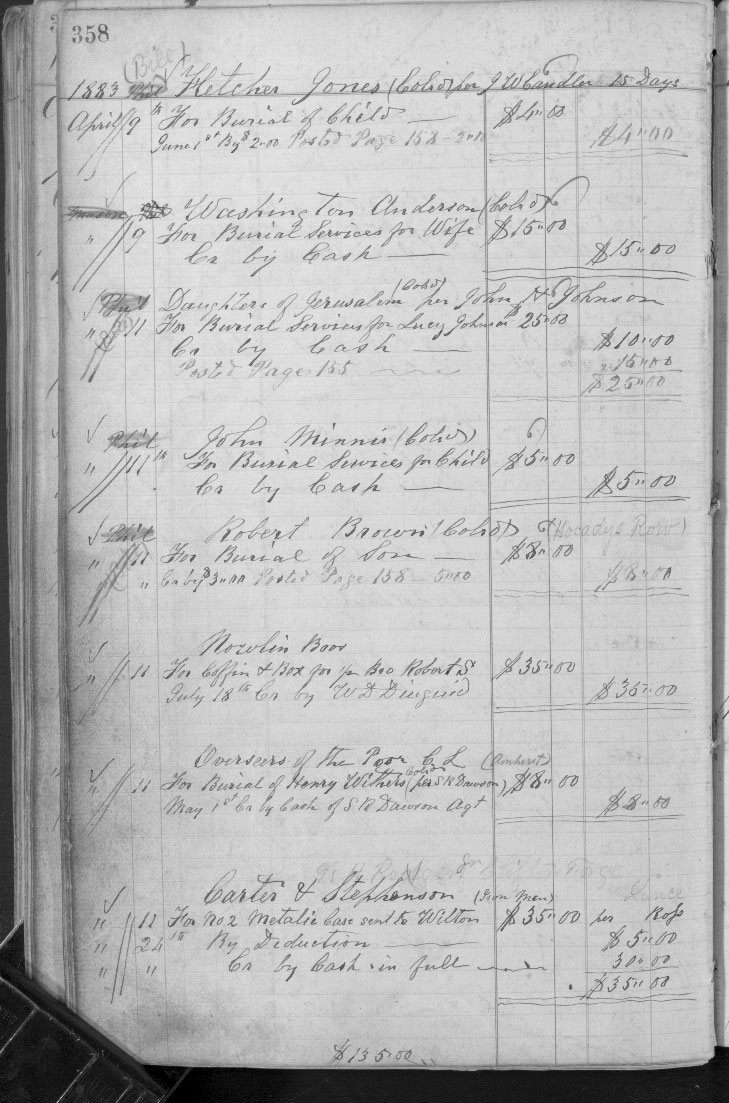 358
(Bill)
1883 Phil Fletcher Jones (Cold) per J W Candler 15 Days
April 9th For Burial of Child — $4"00
June 1st By $2"00 Posted Page 158 - 2"00 $4"00
Washington Anderson (Cold)
" 9 For Burial Services for Wife $15"00
Cr by Cash — $15"00
Phil Daughters of Jerusalem (Cold) per John H Johnson
" 11 For Burial Services for Lucy Johnson $25"00
Cr by Cash — $10"00
Posted Page 155 15"00
$25"00
Phil John Minnis (Cold)
" 11th For Burial Services for Child $5"00
Cr by Cash — $5"00
Phil Robert Brown (Cold) (Hocadys Row)
" 11 For Burial of Son — $8"00
" Cr by $3"00 Posted Page 158 - 5"00 $8"00
Nowlin Boor
" 11 For Coffin & Box for yr Bro Robert S $35"00
July 18th Cr by W D Diuguid $35"00
Overseers of the Poor C L (Amherst)
" 11 For Burial of Henry Withers (Cold) (per S R Dawson) $8"00
May 1st Cr by Cash of S R Dawson Agt $8"00
Carter & Stephenson (Iron Men)
" 11 For No 2 Metalic Case sent to Wilton $35"00 per
" 24th By Deduction — $5"00
" " Cr by Cash in full 30"00
$35"00
$135"00